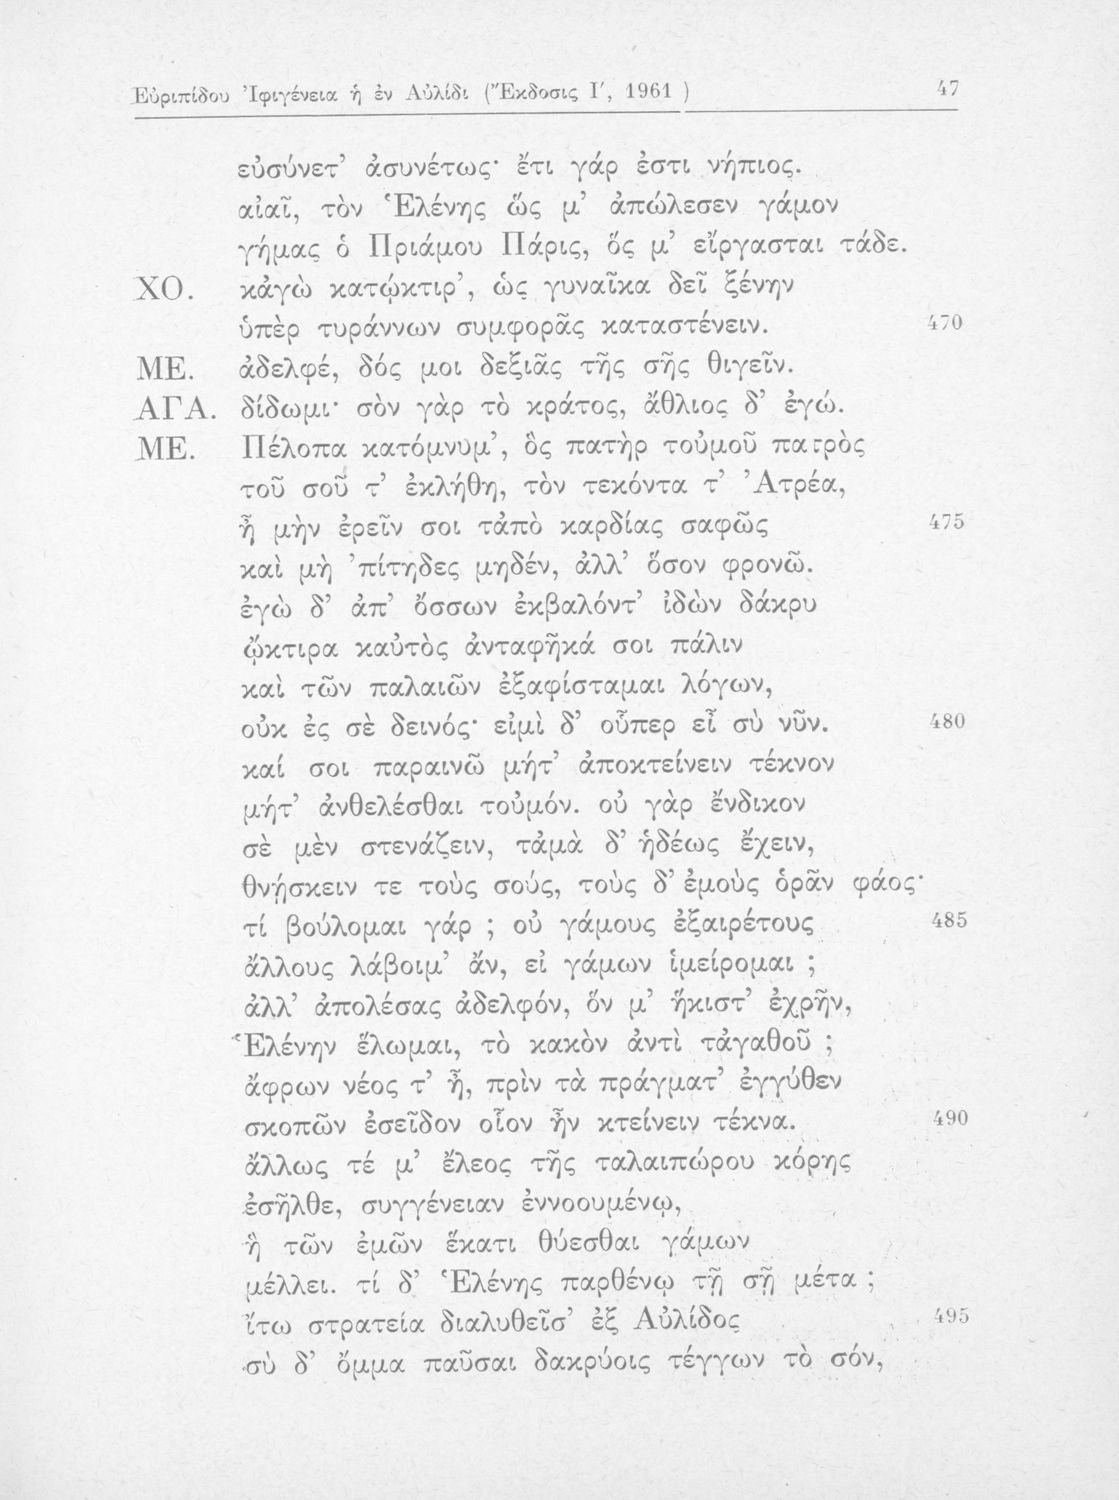 Εὐριπίδου Ἰφιγένεια ἡ ἐν Αὐλίδι (Ἔκδοσις Ι΄, 1961 ) 47
εὐσύνετ᾽ ἀσυνέτως· ἔτι γάρ ἐστι νήπιος.
αἰαῖ, τὸν Ἑλένης ὥς μ᾽ ἀπώλεσεν γάμον
γήμας ὁ Πριάμου Πάρις, ὅς μ᾽ εἴργασται τάδε.
ΧΟ. κἀγὼ κατῴκτιρ᾽, ὡς γυναῖκα δεῖ ξένην
ὑπὲρ τυράννων συμφορᾶς καταστένειν. 470
ΜΕ. ἀδελφέ, δός μοι δεξιᾶς τῆς σῆς θιγεῖν.
ΑΓΑ. δίδωμι· σὸν γὰρ τὸ κράτος, ἄθλιος δ᾽ ἐγώ.
ΜΕ. Πέλοπα κατόμνυμ᾽, ὃς πατὴρ τοὐμοῦ πατρὸς
τοῦ σοῦ τ᾽ ἐκλήθη, τὸν τεκόντα τ᾽ Ἀτρέα,
ἦ μὴν ἐρεῖν σοι τἀπὸ καρδίας σαφῶς 475
καὶ μὴ ᾽πίτηδες μηδέν, ἀλλ᾽ ὅσον φρονῶ.
ἐγὼ δ᾽ ἀπ᾽ ὄσσων ἐκβαλόντ᾽ ἰδὼν δάκρυ
ᾤκτιρα καὐτὸς ἀνταφῆκά σοι πάλιν
καὶ τῶν παλαιῶν ἐξαφίσταμαι λόγων,
οὐκ ἐς σὲ δεινός· εἰμὶ δ᾽ οὗπερ εἶ σὺ νῦν. 480
καί σοι παραινῶ μήτ᾽ ἀποκτείνειν τέκνον
μήτ᾽ ἀνθελέσθαι τοὐμόν. οὐ γὰρ ἔνδικον
σὲ μὲν στενάζειν, τἀμὰ δ᾽ ἡδέως ἔχειν,
θνῄσκειν τε τοὺς σούς, τοὺς δ᾽ ἐμοὺς ὁρᾶν φάος·
τί βούλομαι γάρ ; οὐ γάμους ἐξαιρέτους 485
ἄλλους λάβοιμ᾽ ἄν, εἰ γάμων ἱμείρομαι ;
ἀλλ᾽ ἀπολέσας ἀδελφόν, ὅν μ᾽ ἥκιστ᾽ ἐχρῆν,
Ἑλένην ἕλωμαι, τὸ κακὸν ἀντὶ τἀγαθοῦ ;
ἄφρων νέος τ᾽ ἦ, πρὶν τὰ πράγματ᾽ ἐγγύθεν
σκοπῶν ἐσεῖδον οἷον ἦν κτείνειν τέκνα. 490
ἄλλως τέ μ᾽ ἔλεος τῆς ταλαιπώρου κόρης
ἐσῆλθε, συγγένειαν ἐννοουμένῳ,
ἣ τῶν ἐμῶν ἕκατι θύεσθαι γάμων
μέλλει. τί δ᾽ Ἑλένης παρθένῳ τῇ σῇ μέτα ;
ἴτω στρατεία διαλυθεῖσ᾽ ἐξ Αὐλίδος 495
σὺ δ᾽ ὄμμα παῦσαι δακρύοις τέγγων τὸ σόν,